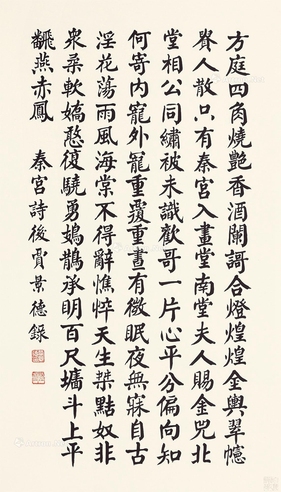 方庭四角燒艷香酒闌謌合燈煌煌金輿翠幰
賓人散只有秦宮入畫堂南堂夫人賜金兕北
堂相公同繡被未識歡哥一片心平分偏向知
何寄内寵外寵重重覆重晝有微眠夜無寐自古
淫花蕩雨風海棠不得辭憔悴天生桀黠奴非
衆柔軟嬌憨復驍勇鳷鵲承明百尺墉斗上平
翻燕赤鳳
秦宮詩後賈景德錄